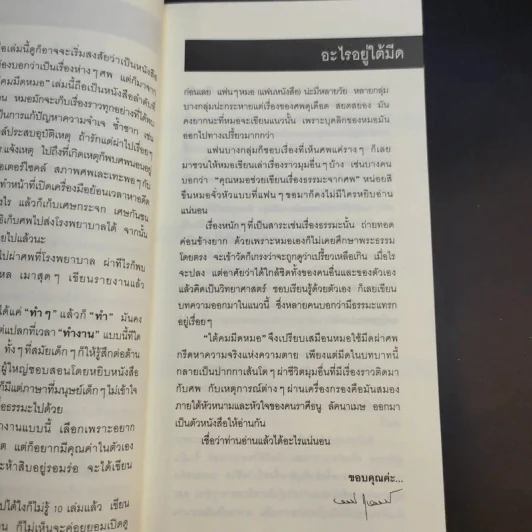 อเล่มนี้ดูก็อาจจะเริ่มสงสัยว่าเป็นหนังสือ
องบอกว่าเป็นเรื่องห่างๆ ศพ แต่ก็มาจากๆ
คมมีดหมอ" เล่มนี้ถือเป็นหนังสือลำดับที่
น หมอมักจะเก็บเรื่องราวทุกอย่างที่ได้พบ
เป็นการแก้ปัญหาความจำเจ ซ้ำซาก เช่น
ล์ประสบอุบัติเหตุ ถ้ารักแต่ผ่าไปเรื่อยๆ
แจ้งเหตุ ไปถึงที่เกิดเหตุก็พบศพนอนอยู่
อเตอร์ไซคล์ สภาพศพและเทะพอๆ กับ
ทำหน้าที่เปิดเครื่องมือย้อนเวลาหาอดีต
งไร แล้วก็เก็บเศษกระจก เศษกันชน
ธิเก็บศพไปส่งโรงพยาบาลได้ จากนั้น
ยไปแล้วนะ
ไปผ่าศพที่โรงพยาบาล ผ่าทีไรก็พบ
หล เมาสุดๆ เขียนรายงานแล้ว
ได้แค่ "ทำๆ" แล้วก็ "ทำ" มันคง
แปลกที่เวลา "ทำงาน" แบบนี้ที่ได
ทั้งๆ ที่สมัยเด็กๆ ก็ให้รู้สึกต่อต้าน
ผู้ใหญ่ชอบสอนโดยหยิบหนังสือ
ก็มีแต่ภาษาที่มนุษย์เด็กๆ ไม่เข้าใจ
ื่อธรรมะไปด้วย
างานแบบนี้ เลือกเพราะอยาก
ต แต่ก็อยากมีคุณค่าในตัวเอง
ะห้าสิบอยู่รอมร่อ จะได้เขียน
ปได้ไงก็ไม่รู้ 10 เล่มแล้ว เขียน
ก็ไม่เห็นจะค่อยยอมเปิดดู
อะไรอยู่ใต้มีด
ก่อนเลย แฟนๆ หมอ (แฟนหนังสือ) น่ะมีหลายวัย หลายกลุ่ม
บางกลุ่มน่ะกระหายแต่เรื่องของศพดุเดือด สยดสยอง มัน
คงยากนะที่หมอจะเขียนแนวนั้น เพราะบุคลิกของหมอมัน
ออกไปทางเปรี้ยวมากกว่า
แฟนบางกลุ่มก็ชอบเรื่องที่เห็นศพแค่รางๆ ก็เลย
มาชวนให้หมอเขียนเล่าเรื่องราวมุมอื่นๆ บ้าง เช่นบางคน
บอกว่า "คุณหมอช่วยเขียนเรื่องธรรมะจากศพ" หน่อยสิ
ขืนหมอจั่วหัวแบบที่แฟนๆ ขอมาก็คงไม่มีใครหยิบอ่าน
แน่นอน
เรื่องหนักๆ ที่เป็นสาระเช่นเรื่องธรรมะนั้น ถ่ายทอด
ค่อนข้างยาก ด้วยเพราะหมอเองก็ไม่เคยศึกษาพระธรรม
โดยตรง จะเข้าวัดก็เกรงว่าจะถูกดูว่าเปรี้ยวเหลือเกิน เมื่อไร
จะปลง แต่อาศัยว่าได้ใกล้ชิดทั้งของคนอื่นและของตัวเอง
แล้วคิดเป็นวิทยาศาสตร์ ชอบเรียนรู้ด้วยตัวเอง ก็เลยเขียน
บทความออกมาในแนวนี้ ซึ่งหลายคนบอกว่ามีธรรมะแทรก
อยู่เรื่อยๆ
"ใต้คมมีดหมอ" จึงเปรียบเสมือนหมอใช้มีดผ่าศพ
กรีดหาความจริงแห่งความตาย เพียงแต่มีดในบทบาทนี้
กลายเป็นปากกาเส้นโตๆ ผ่าชีวิตมุมอื่นที่มีเรื่องราวติดมา
กับศพ กับเหตุการณ์ต่างๆ ผ่านเครื่องกรองคือมันสมอง
ภายใต้หัวหนามและหัวใจของคนราศีธนู ลัคนาเมษ ออกมา
เป็นตัวหนังสือให้อ่านกัน
เชื่อว่าท่านอ่านแล้วได้อะไรแน่นอน
ขอบคุณค่ะ...